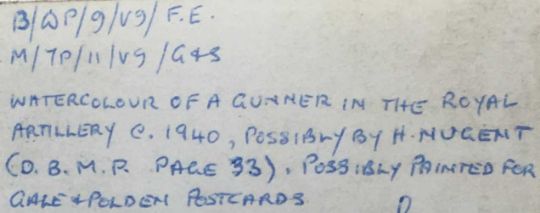 B/WP/9/V9/F.E.
M/7P/11/V9/G&S
WATERCOLOUR OF A GUNNER IN THE ROYAL
ARTILLERY C. 1940, POSSIBLY BY H. NUGENT
(O.B.M.P. PAGE 33). POSSIBLY PAINTED FOR
GALE & POLDEN POSTCARDS